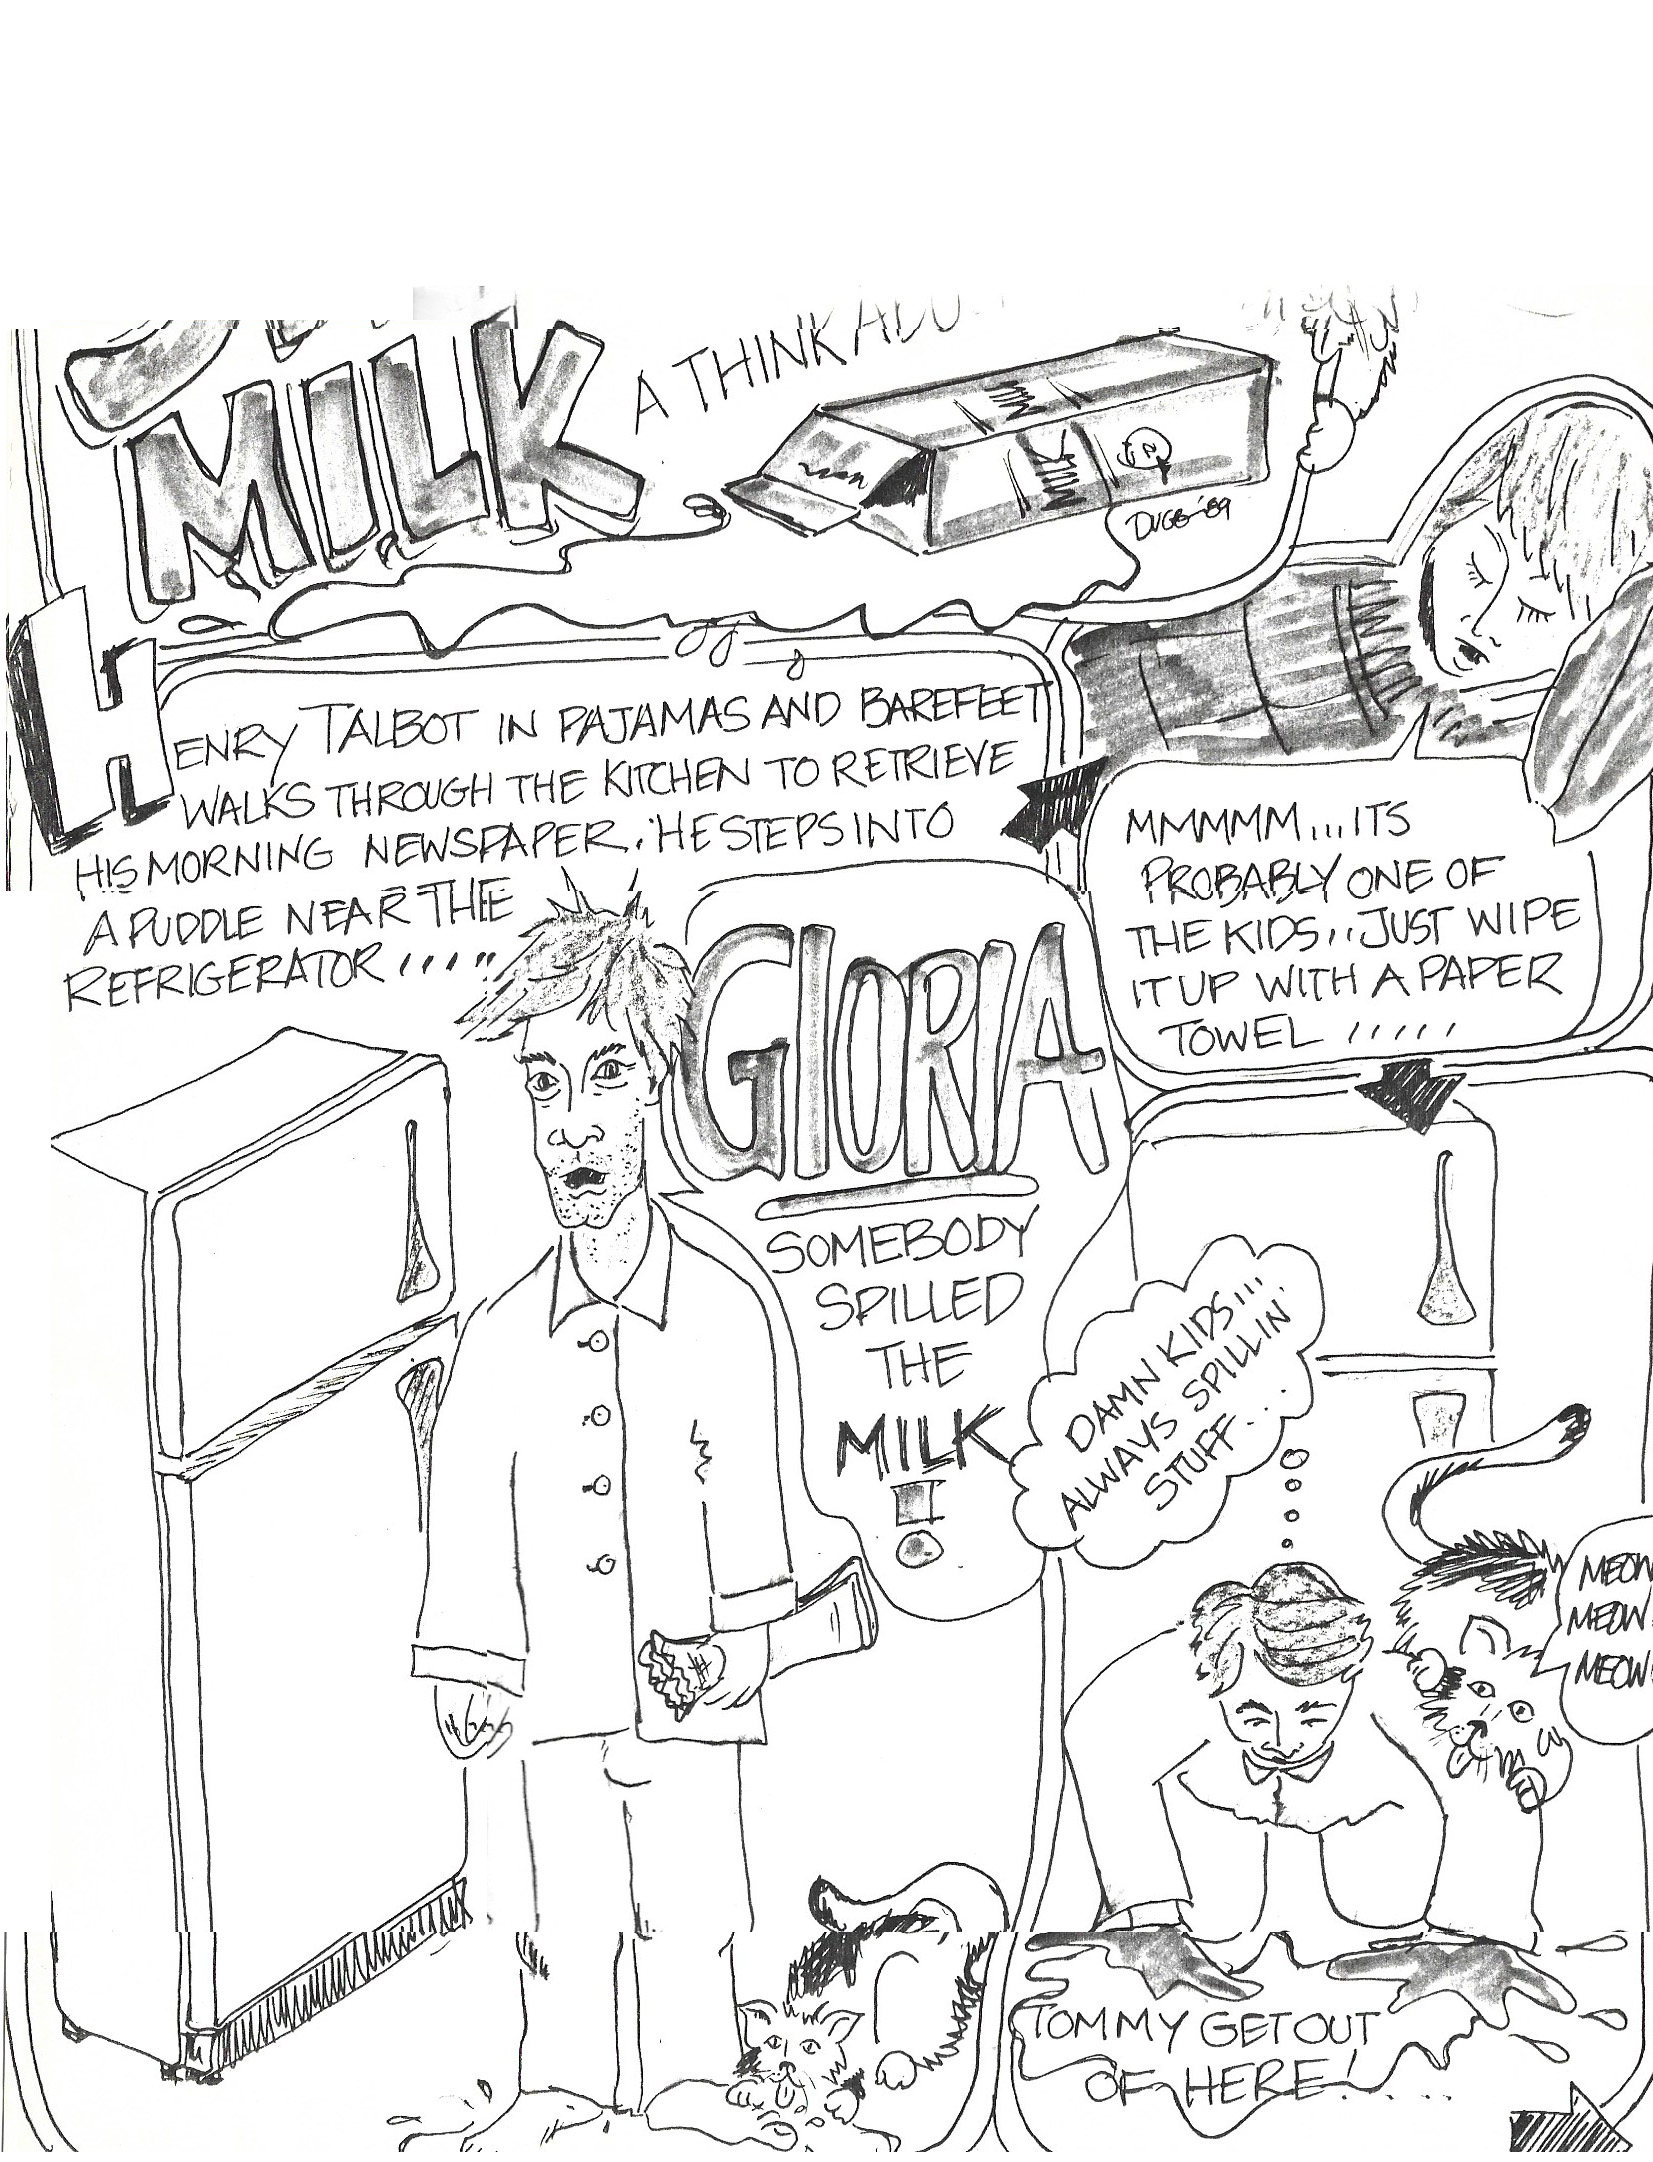 MILK
A THINK
MILK
MILK
DUGB '89
HENRY TALBOT IN PAJAMAS AND BAREFEET
WALKS THROUGH THE KITCHEN TO RETRIEVE
HIS MORNING NEWSPAPER.. HE STEPS INTO
A PUDDLE NEAR THE
REFRIGERATOR .....
GLORIA
SOMEBODY
SPILLED
THE
MILK
!
MMMMM...ITS
PROBABLY ONE OF
THE KIDS..JUST WIPE
IT UP WITH A PAPER
TOWEL .....
DAMN KIDS...
ALWAYS SPILLIN'
STUFF...
MEOW
MEOW
MEOW
TOMMY GET OUT
OF HERE!....